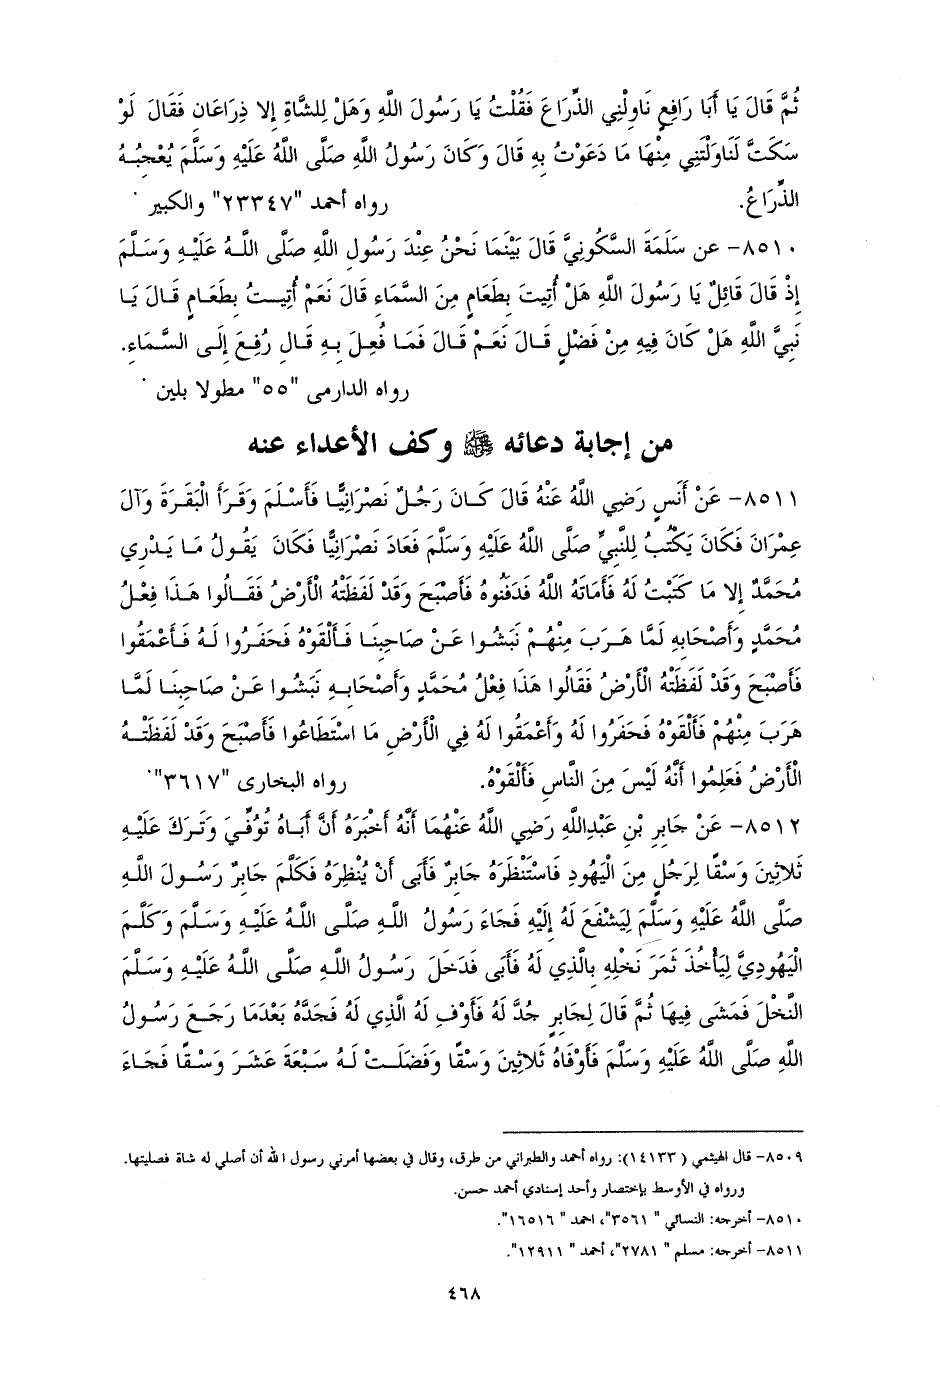 ثُمَّ قَالَ يَا أَبَا رَافِعٍ نَاوِلْنِي الذِّرَاعَ فَقُلْتُ يَا رَسُولَ اللَّهِ وَهَلْ لِلشَّاةِ إِلا ذِرَاعَانِ فَقَالَ لَوْ
سَكَتَّ لَنَاوَلْتَنِي مِنْهَا مَا دَعَوْتُ بِهِ قَالَ وَكَانَ رَسُولُ اللَّهِ صَلَّى اللَّهُ عَلَيْهِ وَسَلَّمَ يُعْجِبُهُ
الذِّرَاعُ. رواه أحمد "٢٣٣٤٧" والكبير .
٨٥١٠- عن سَلَمَةَ السَّكُونِيَّ قَالَ بَيْنَمَا نَحْنُ عِنْدَ رَسُولِ اللَّهِ صَلَّى اللَّهُ عَلَيْهِ وَسَلَّمَ
إِذْ قَالَ قَائِلٌ يَا رَسُولَ اللَّهِ هَلْ أُتِيتَ بِطَعَامٍ مِنَ السَّمَاءِ قَالَ نَعَمْ أُتِيتُ بِطَعَامٍ قَالَ يَا
نَبِيَّ اللَّهِ هَلْ كَانَ فِيهِ مِنْ فَضْلٍ قَالَ نَعَمْ قَالَ فَمَا فُعِلَ بِهِ قَالِ رُفِعَ إِلَى السَّمَاءِ.
رواه الدارمى "٥٥" مطولا بلين .
من إجابة دعائه ﷺ وكف الأعداء عنه
٨٥١١- عَنْ أَنَسٍ رَضِي اللَّهُ عَنْهُ قَالَ كَانَ رَجُلٌ نَصْرَانِيًّا فَأَسْلَمَ وَقَرَأَ الْبَقَرَةَ وَآلَ
عِمْرَانَ فَكَانَ يَكْتُبُ لِلنَّبِيِّ صَلَّى اللَّهُ عَلَيْهِ وَسَلَّمَ فَعَادَ نَصْرَانِيًّا فَكَانَ يَقُولُ مَا يَدْرِي
مُحَمَّدٌ إِلا مَا كَتَبْتُ لَهُ فَأَمَاتَهُ اللَّهُ فَدَفَنُوهُ فَأَصْبَحَ وَقَدْ لَفَظَتْهُ الْأَرْضُ فَقَالُوا هَذَا فِعْلُ
مُحَمَّدٍ وَأَصْحَابِهِ لَمَّا هَرَبَ مِنْهُمْ نَبَشُوا عَنْ صَاحِبِنَا فَأَلْقَوْهُ فَحَفَرُوا لَهُ فَأَعْمَقُوا
فَأَصْبَحَ وَقَدْ لَفَظَتْهُ الْأَرْضُ فَقَالُوا هَذَا فِعْلُ مُحَمَّدٍ وَأَصْحَابِهِ نَبَشُوا عَنْ صَاحِبِنَا لَمَّا
هَرَبَ مِنْهُمْ فَأَلْقَوْهُ فَحَفَرُوا لَهُ وَأَعْمَقُوا لَهُ فِي الْأَرْضِ مَا اسْتَطَاعُوا فَأَصْبَحَ وَقَدْ لَفَظَتْهُ
الْأَرْضُ فَعَلِمُوا أَنَّهُ لَيْسَ مِنَ النَّاسِ فَأَلْقَوْهُ. رواه البخارى "٣٦١٧".
٨٥١٢- عَنْ جَابِرِ بْنِ عَبْدِاللَّهِ رَضِي اللَّهُ عَنْهُمَا أَنَّهُ أَخْبَرَهُ أَنَّ أَبَاهُ تُوُفِّيَ وَتَرَكَ عَلَيْهِ
ثَلاثِينَ وَسْقًا لِرَجُلٍ مِنَ الْيَهُودِ فَاسْتَنْظَرَهُ جَابِرٌ فَأَبَى أَنْ يُنْظِرَهُ فَكَلَّمَ جَابِرٌ رَسُولَ اللَّهِ
صَلَّى اللَّهُ عَلَيْهِ وَسَلَّمَ لِيَشْفَعَ لَهُ إِلَيْهِ فَجَاءَ رَسُولُ اللَّهِ صَلَّى اللَّهُ عَلَيْهِ وَسَلَّمَ وَكَلَّمَ
الْيَهُودِيَّ لِيَأْخُذَ ثَمَرَ نَخْلِهِ بِالَّذِي لَهُ فَأَبَى فَدَخَلَ رَسُولُ اللَّهِ صَلَّى اللَّهُ عَلَيْهِ وَسَلَّمَ
النَّخْلَ فَمَشَى فِيهَا ثُمَّ قَالَ لِجَابِرٍ جُدَّ لَهُ فَأَوْفِ لَهُ الَّذِي لَهُ فَجَدَّهُ بَعْدَمَا رَجَعَ رَسُولُ
اللَّهِ صَلَّى اللَّهُ عَلَيْهِ وَسَلَّمَ فَأَوْفَاهُ ثَلاثِينَ وَسْقًا وَفَضَلَتْ لَهُ سَبْعَةَ عَشَرَ وَسْقًا فَجَاءَ
٨٥٠٩- قال الهيثمي (١٤١٣٣): رواه أحمد والطبراني من طرق، وقال في بعضها أمرني رسول الله أن أصلي له شاة فصليتها.
ورواه في الأوسط بإختصار وأحد إسنادي أحمد حسن.
٨٥١٠- أخرجه: النسائي "٣٥٦١"، احمد "١٦٥١٦".
٨٥١١- أخرجه: مسلم "٢٧٨١"، أحمد "١٢٩١١".
٤٦٨